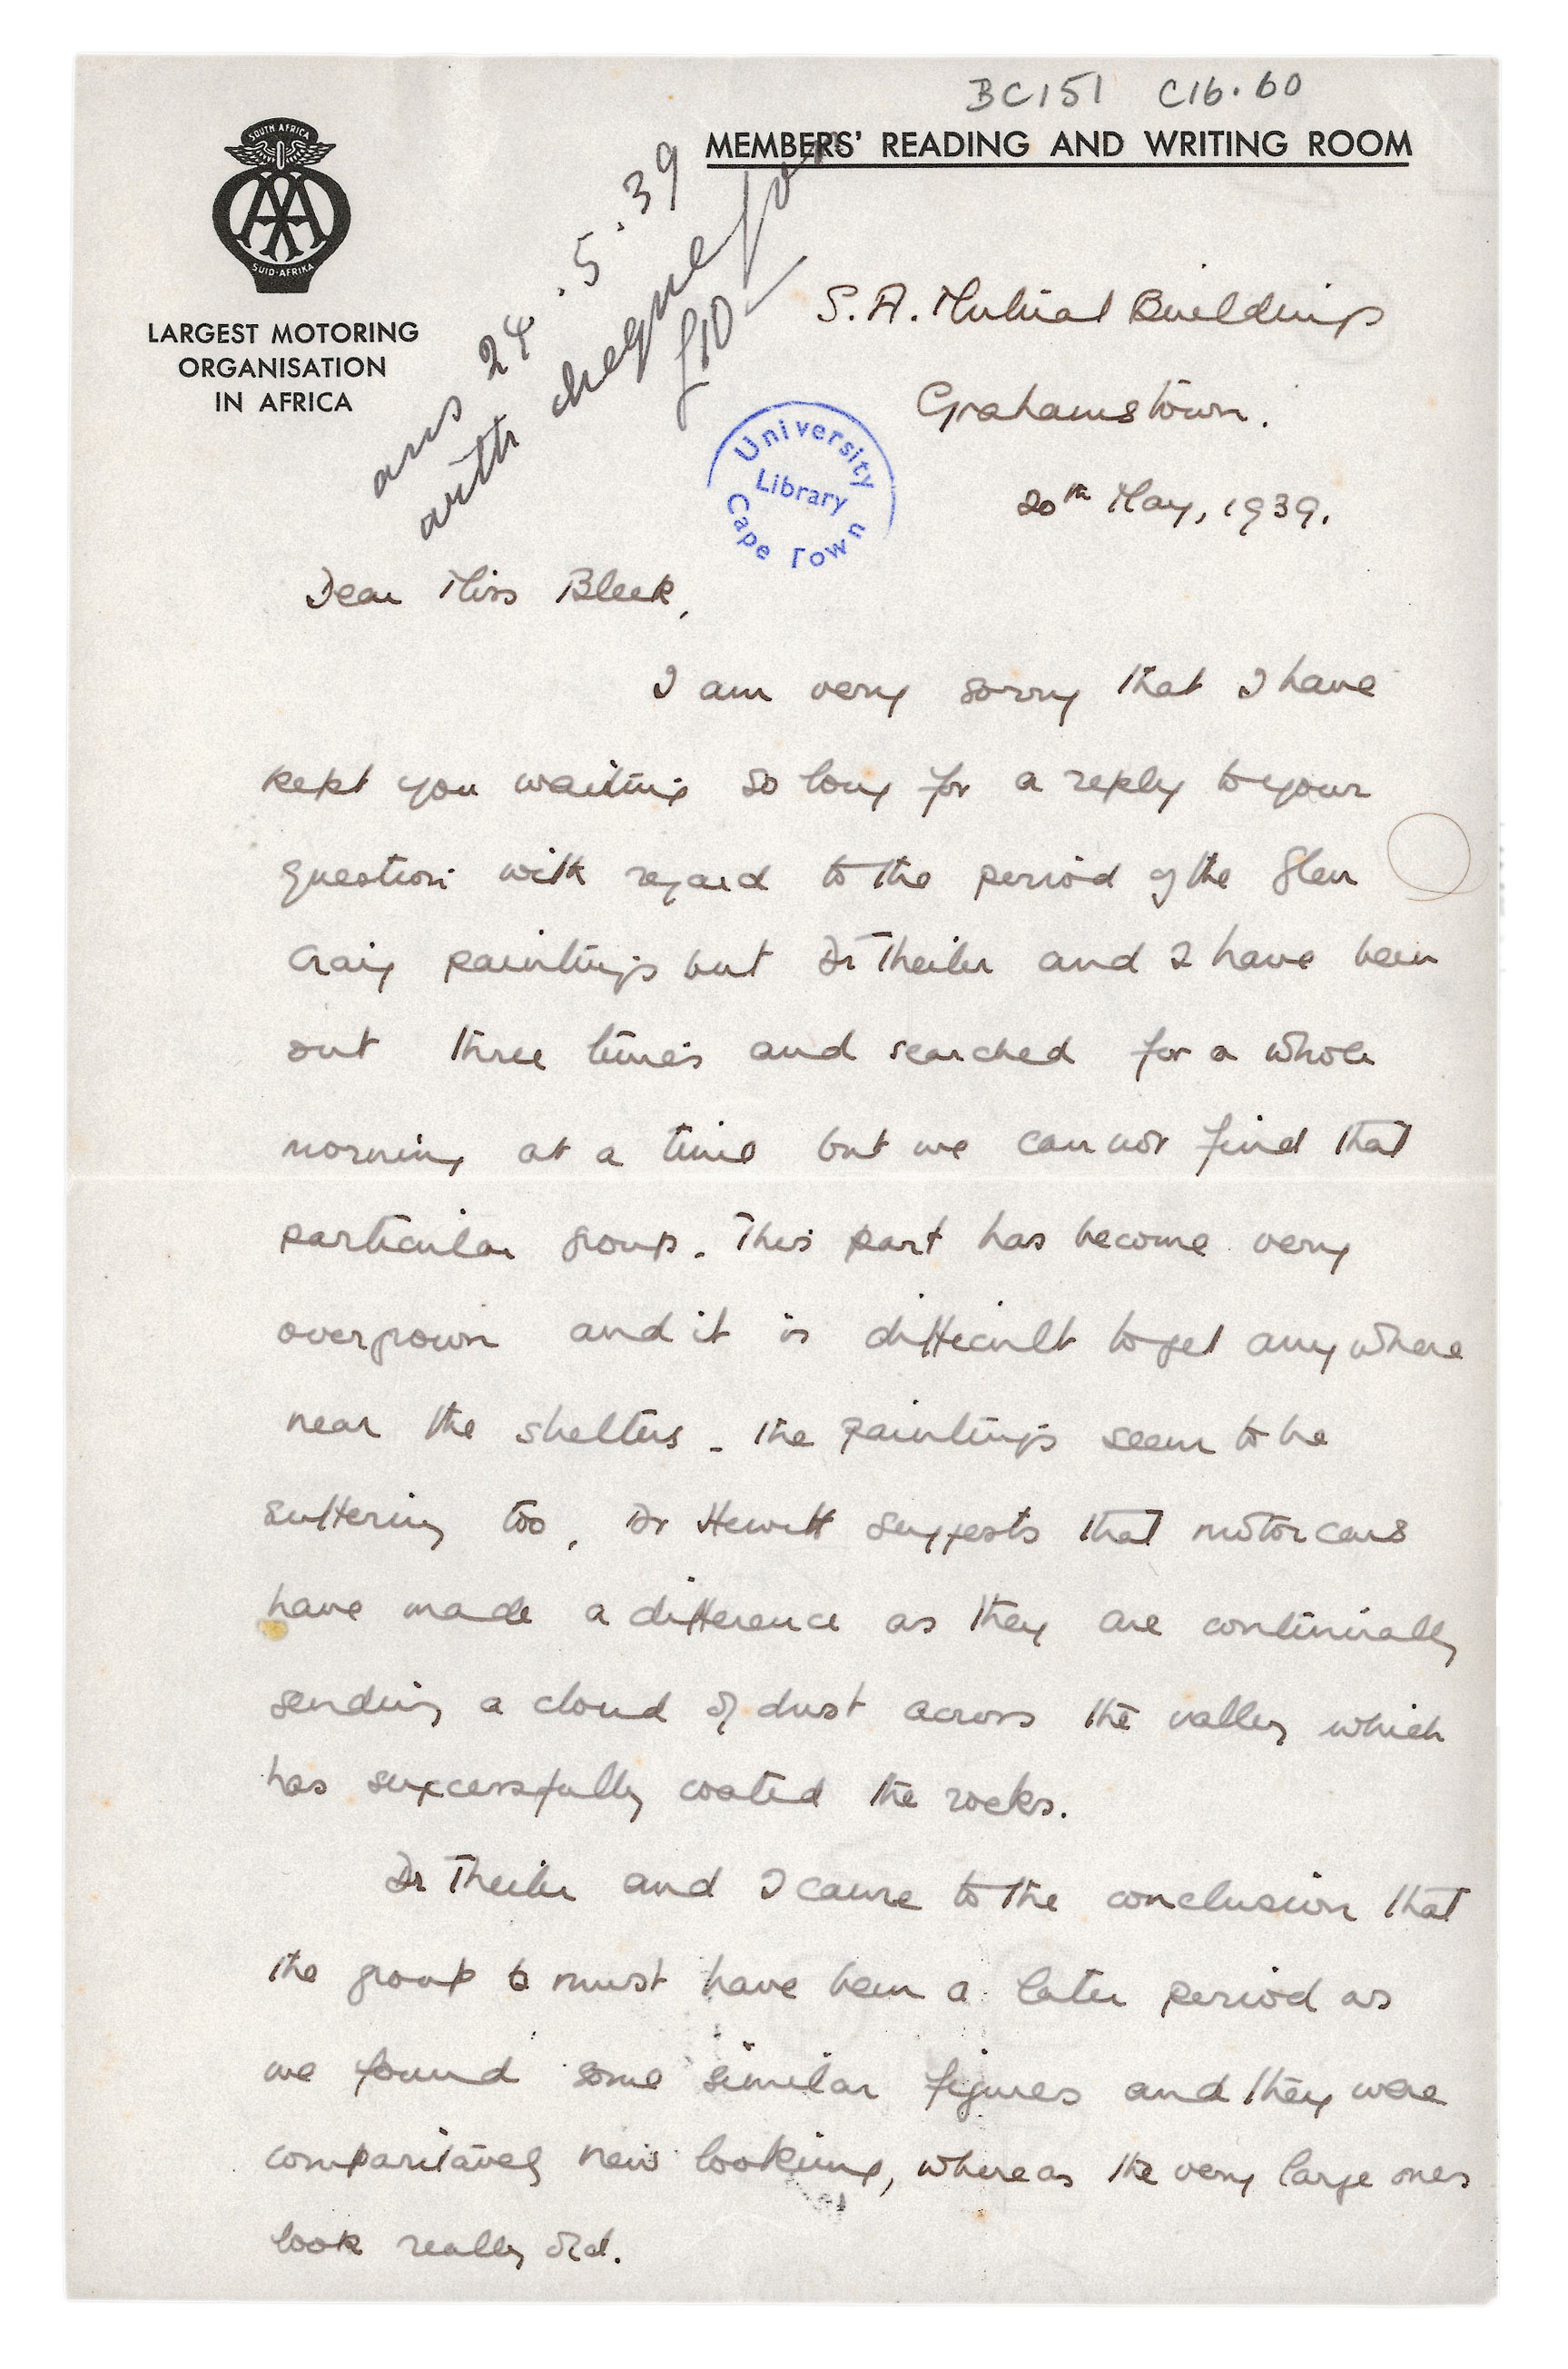 BC151 C16.60
MEMBERS' READING AND WRITING ROOM
SOUTH AFRICA
AA
SUID-AFRIKA
LARGEST MOTORING
ORGANISATION
IN AFRICA
ans 24.5.39
with cheque for
£10
S.A. Mutual Buildings
Grahamstown.
University
Library
Cape Town
20th May, 1939.
Dear Miss Bleek,
I am very sorry that I have
kept you waiting so long for a reply to your
question with regard to the period of the Glen
Craig paintings but Dr Theiler and I have been
out three times and searched for a whole
morning at a time but we can not find that
particular group. This part has become very
overgrown and it is difficult to get anywhere
near the shelters - the paintings seem to be
suffering too, Dr Hewitt suggests that motor cars
have made a difference as they are continually
sending a cloud of dust across the valley which
has successfully coated the rocks.
Dr Theiler and I came to the conclusion that
the group must have been a later period as
we found some similar figures and they were
comparitavely new looking, whereas the very large ones
look really old.